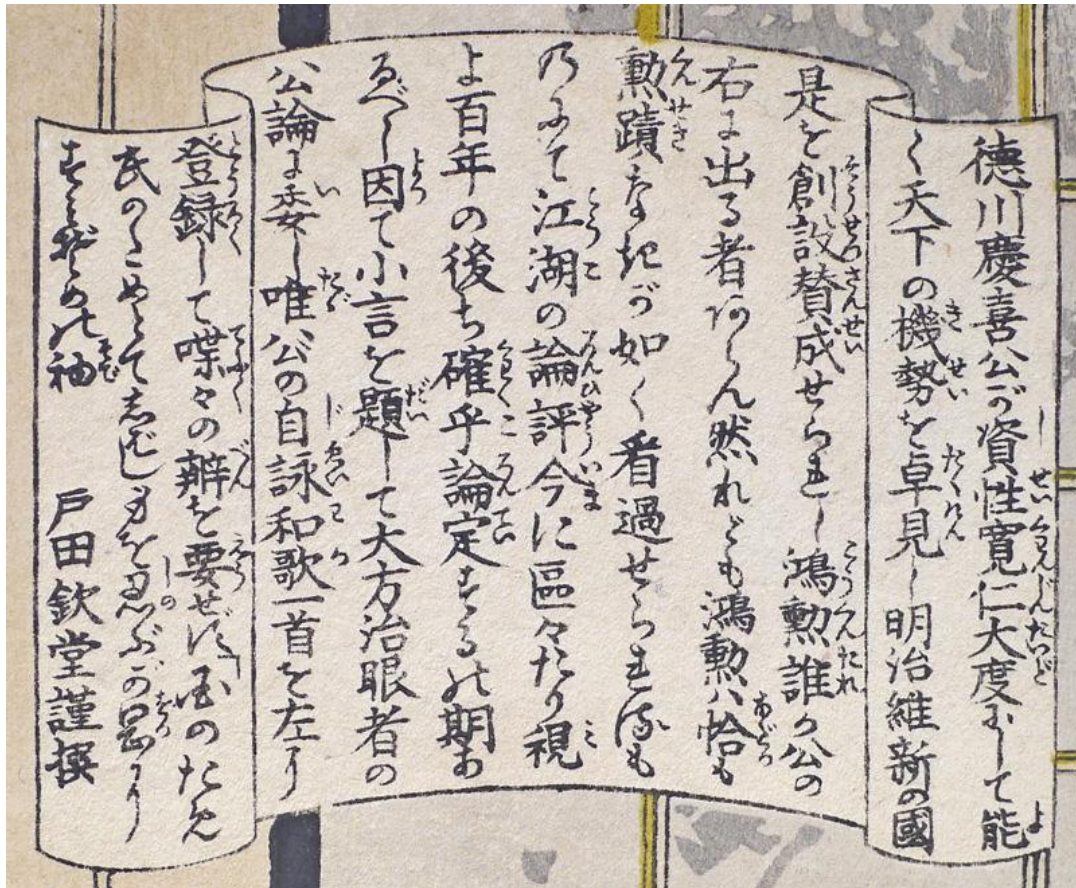 德川慶喜公が資性寛仁大度にして能
く天下の機勢を卓見し明治維新の國
是を創設賛成せられし鴻勲誰か公の
右に出る者あらん然れども鴻勲ハ恰も
勲蹟なきが如く看過せられるも
のにて江湖の論評今に區々たり視
よ百年の後ち確乎論定するの期あ
るべし因て小言を題して大方治眼者の
公論に委し唯公の自詠和歌一首を左に
登録して喋々の辨を要せず「国のため
民のためとてしばし身を忍ぶが岡に
すみぞめの袖　戸田欽堂謹撰